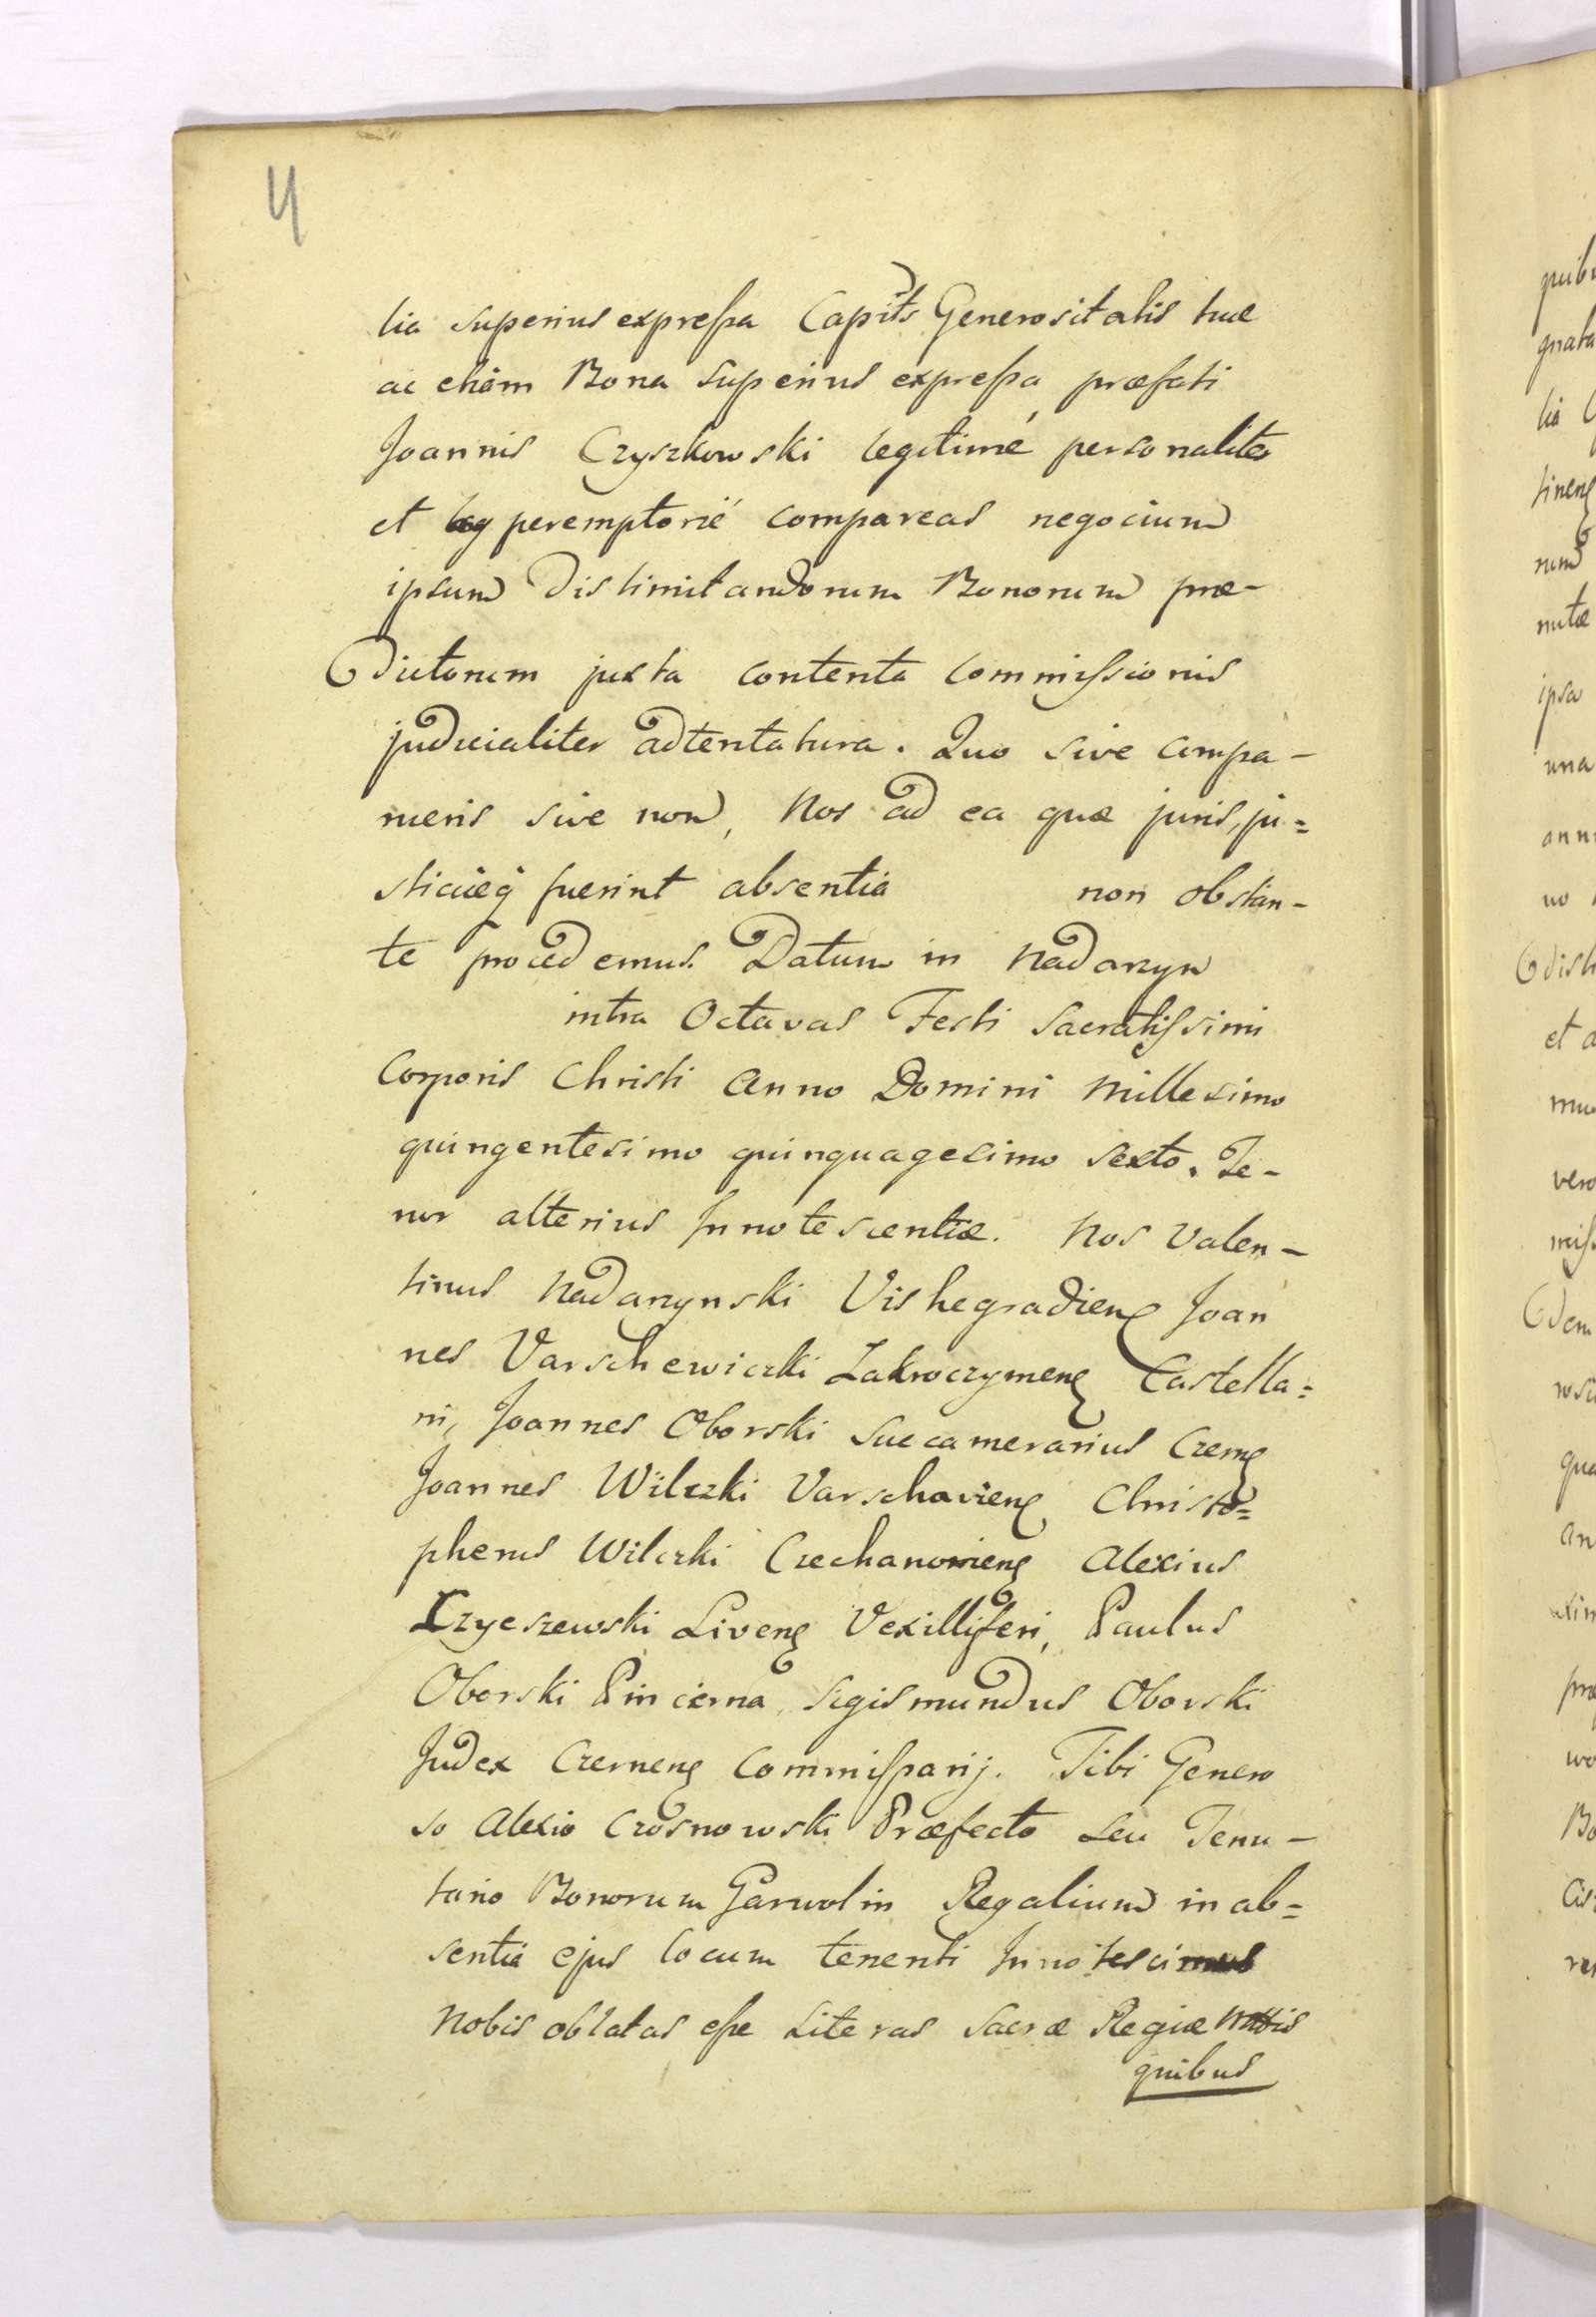 4
lia superius expressa Capitis Generositatis tuæ
ac etiam Bona superius expressa præfati
Joannis Czyszkowski legitimé personaliter
et peremptorié compareas negocium
ipsum dislimitandorum Bonorum præ-
dictorum juxta contenta Commissionis
judicialiter adtentatura. Quo sive compa-
rueris sive non, Nos ad ea quæ juris, ju=
sticiæq fuerint absentia non obstan-
te procedemus. Datum in Nadarzyn
intra Octavas Festi Sacratissimi
Corporis Christi Anno Domini Millesimo
quingentesimo quinquagesimo sexto. Te-
nor alterius Innotescentiæ. Nos Valen-
tinus Nadarzynski Vishegradien Joan
nes Varschewiczki Zakroczymen Castella=
ni, Joannes Oborski Succamerarius Czernen
Joannes Wilczki Varschavien Christo=
pherus Wilczki Czechanovien Alexius
Czyeszewski Liven Vexilliferi, Paulus
Oborski Pincerna, Sigismundus Oborski
Judex Czernen Commissarij. Tibi Genero
so Alexio Crosnowski Præfecto seu Tenu-
tario Bonorum Garwolin Regalium in ab=
sentia ejus locum tenenti Innotescimus
Nobis oblatas esse Literas Sacræ Regiæ Mattis
quibus